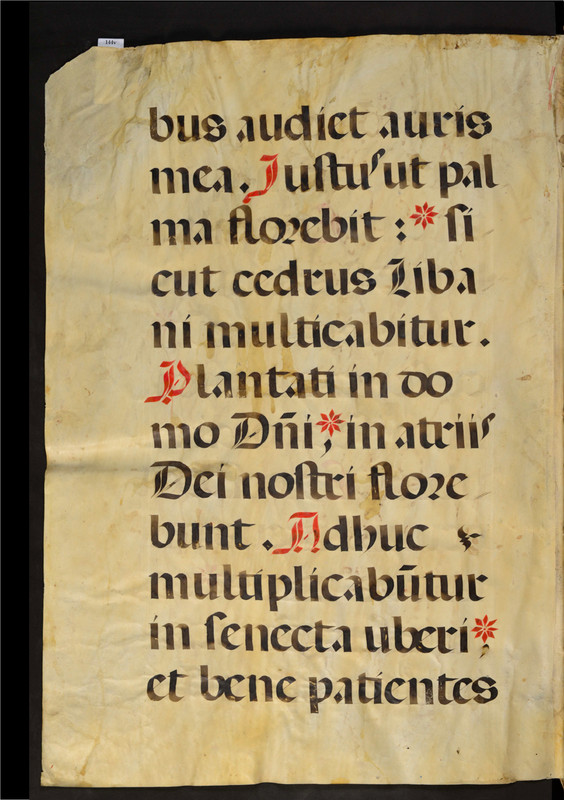 bus audiet auris
mea. Justus ut pal
ma florebit : * si
cut cedrus Liba
ni multicabitur.
Plantati in do
mo Dñi, * in atriis
Dei nostri flore
bunt. Adhuc
multiplicabūtur
in senecta uberi, *
et bene patientes